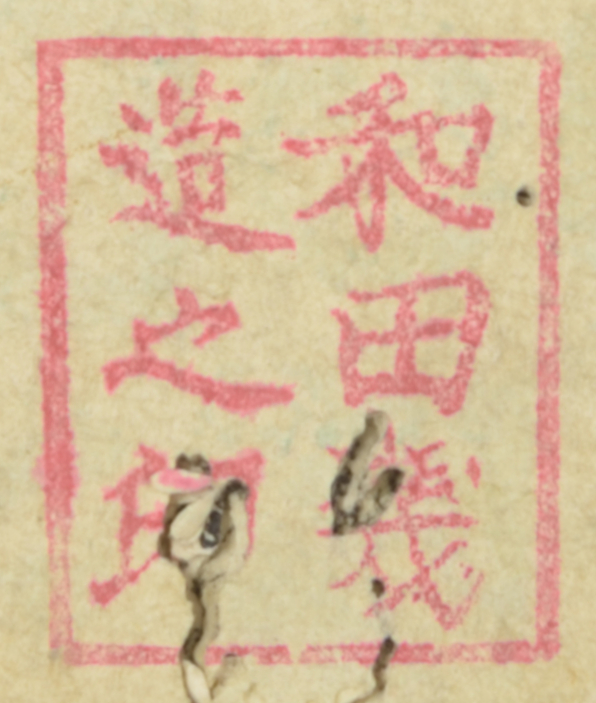 和田義
造之印